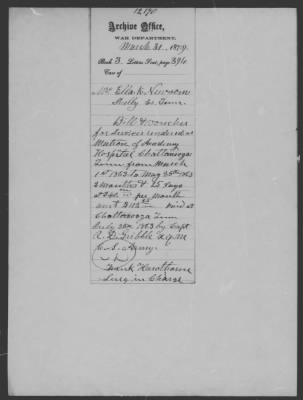 12190
Archive Office,
WAR DEPARTMENT,
March 31, 1879.
Book 3. Letters Sent, page 396
Case of
Mrs. Ella K. Newsom
Shelby Co. Tenn.
Bill & voucher
for services rendered as
Matron of Academy
Hospital Chattanooga
Tenn from March
1st 1863 to May 25th 1863
2 months & 25 days
at $40 per month
amt $113 paid at
Chattanooga Tenn
July 1863 by Capt
A. D. Gribble A.Q.M
C. S. Army.
Frank Hawthorne
Surg in Charge